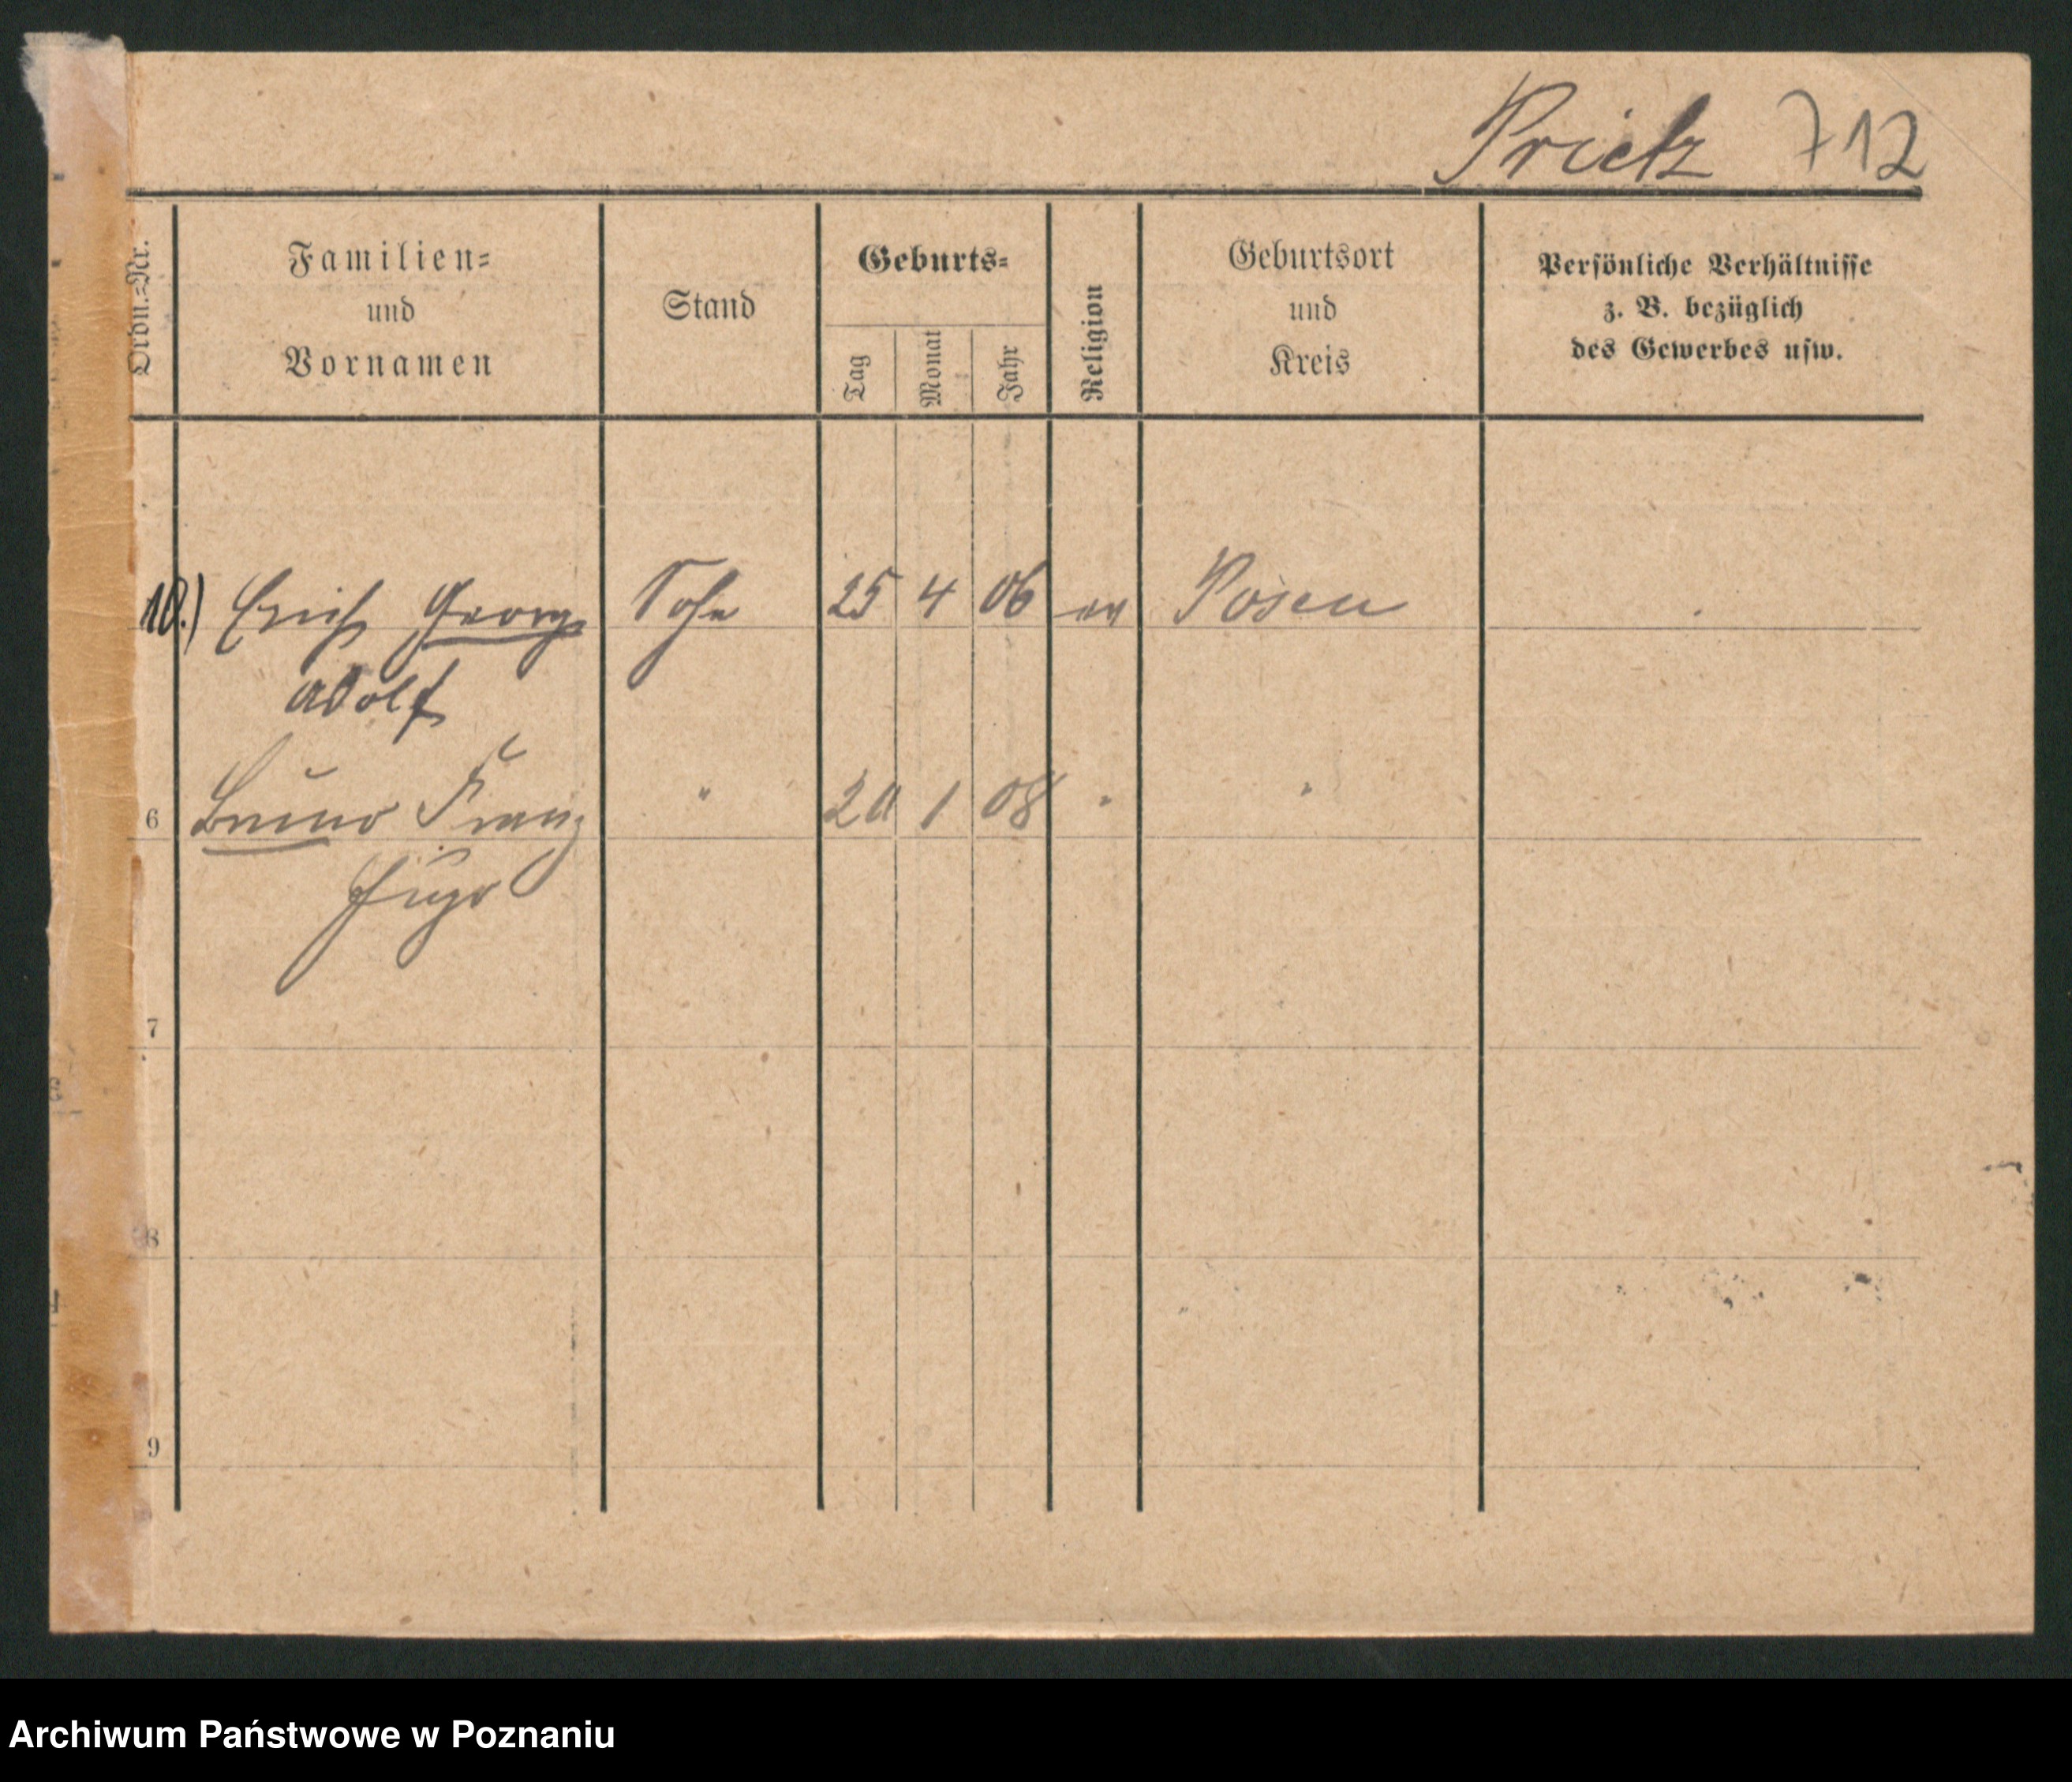 Prietz 712
Ordn.=Nr.
Familien=
und
Vornamen
Stand
Geburts=
Tag
Monat
Jahr
Religion
Geburtsort
und
Kreis
Persönliche Verhältnisse
z. B. bezüglich
des Gewerbes usw.
10.) Erich Georg Sohn 25 4 06 ev Posen
Adolf
6 Bruno Franz " 20 1 08 " "
Hugo
7
8
9
Archiwum Państwowe w Poznaniu